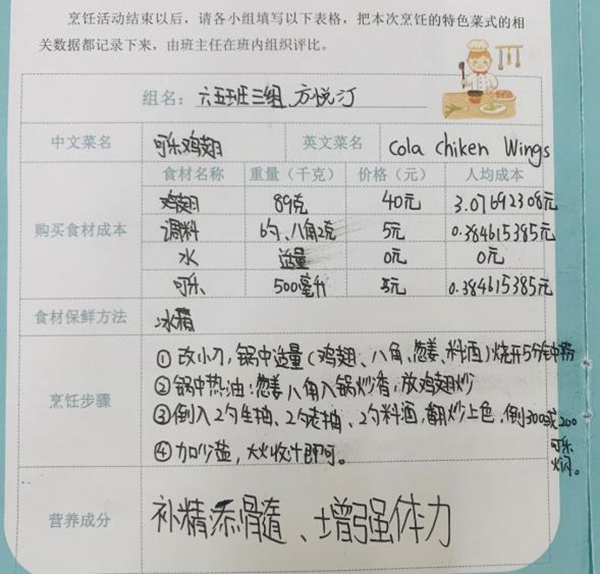 烹饪活动结束以后，请各小组填写以下表格，把本次烹饪的特色菜式的相
关数据都记录下来，由班主任在班内组织评比。
组名：六五班三组 方悦汀
中文菜名 可乐鸡翅 英文菜名 Cola Chiken Wings
食材名称 重量（千克） 价格（元） 人均成本
鸡翅 89克 40元 3.07692308元
购买食材成本 调料 6勺、八角2克 5元 0.384615385元
水 适量 0元 0元
可乐 500毫升 5元 0.384615385元
食材保鲜方法 冰箱
①改小刀，锅中适量（鸡翅、八角、葱姜、料酒）烧开5分钟中捞
烹饪步骤 ②锅中热油：葱姜八角入锅炒香，放鸡翅炒
③倒入2勺生抽、2勺老抽、2勺料酒，翻炒上色，倒300或200
可乐
火焖。
④加少盐，大火收汁即可。
营养成分 补精添骨髓、增强体力